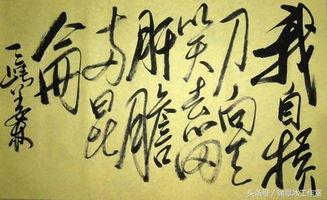 我自横
刀向天
笑去留
肝膽
两昆
侖
头条号
工作室